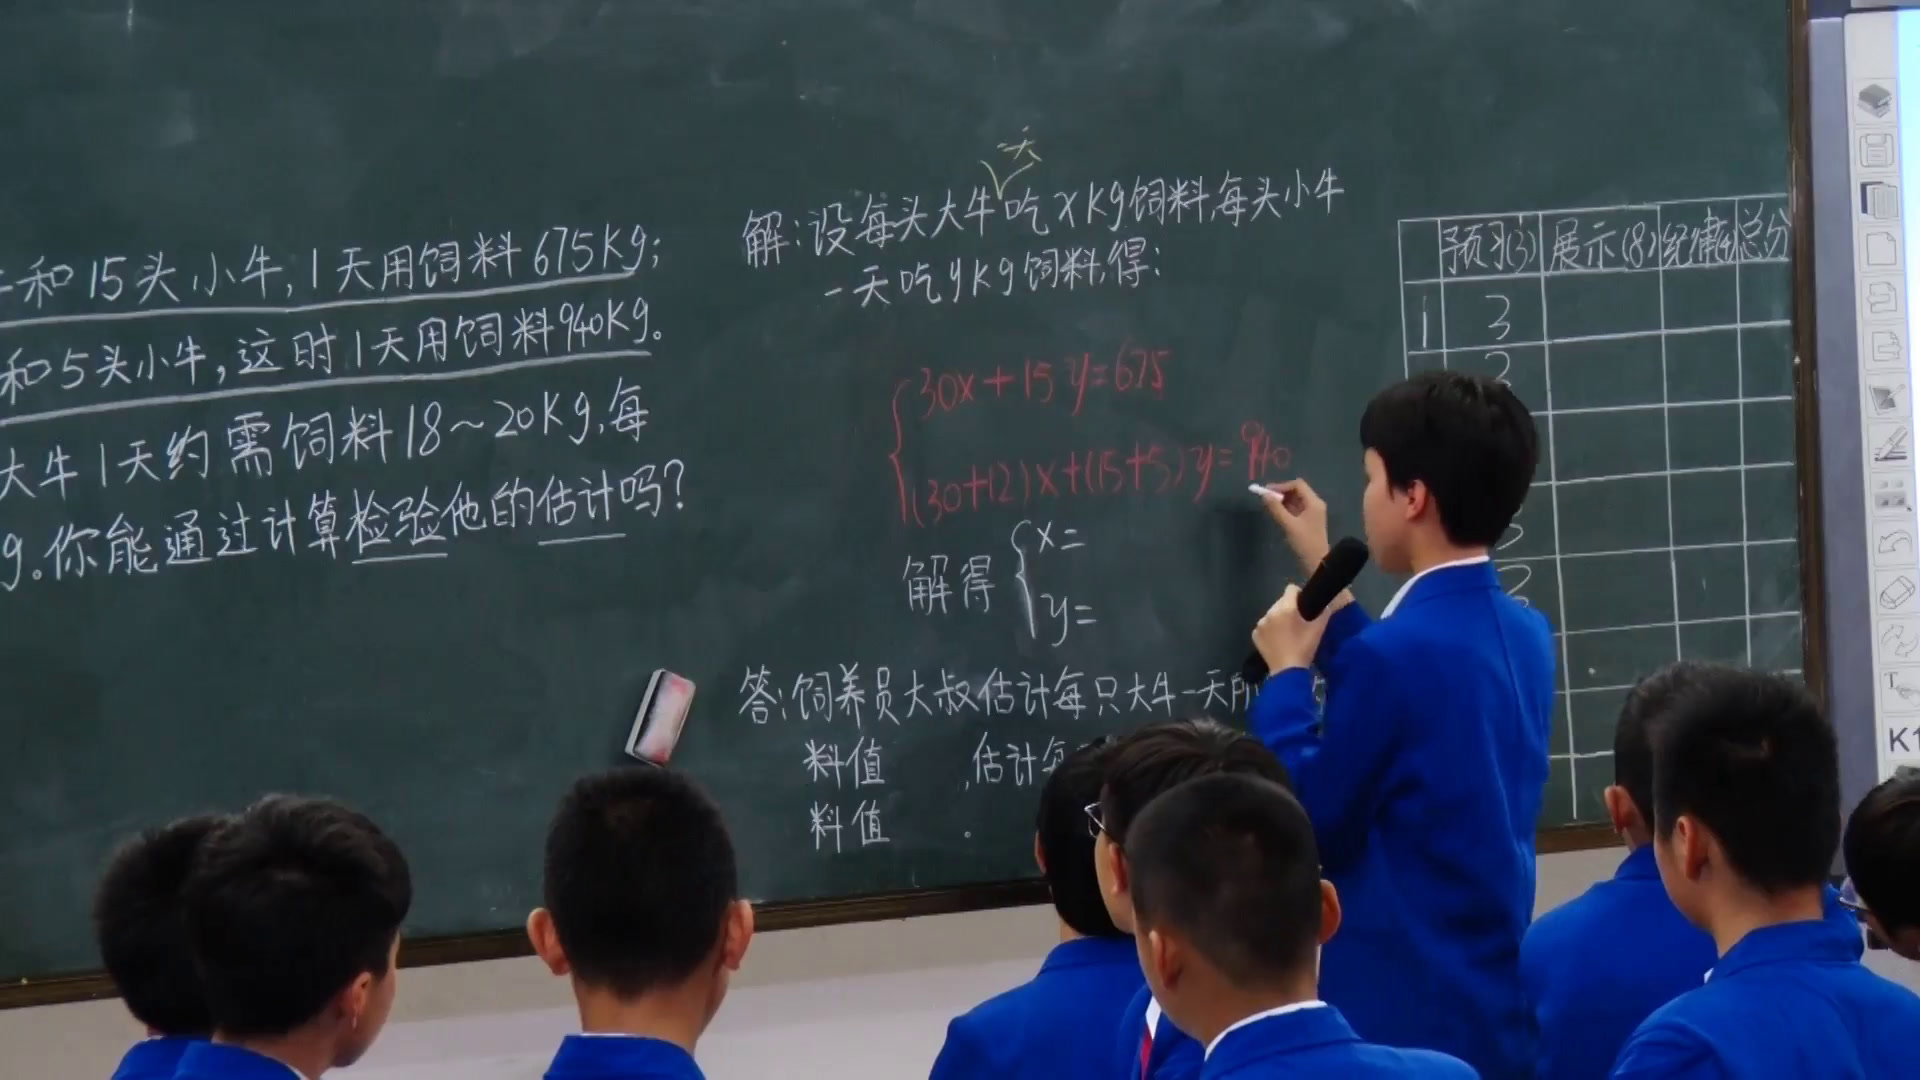 和15头小牛,1天用饲料675Kg;
和5头小牛,这时1天用饲料940Kg。
大牛1天约需饲料18~20Kg,每
g。你能通过计算检验他的估计吗?
一天
解:设每头大牛吃xKg饲料,每头小牛
一天吃yKg饲料,得:
30x+15y=675
(30+12)x+(15+5)y=940
解得 x=
y=
答:饲养员大叔估计每只大牛一天所
料值 ,估计每
料值 。
预习(3) 展示(8) 纪律 总分
1 3
2
3
K1